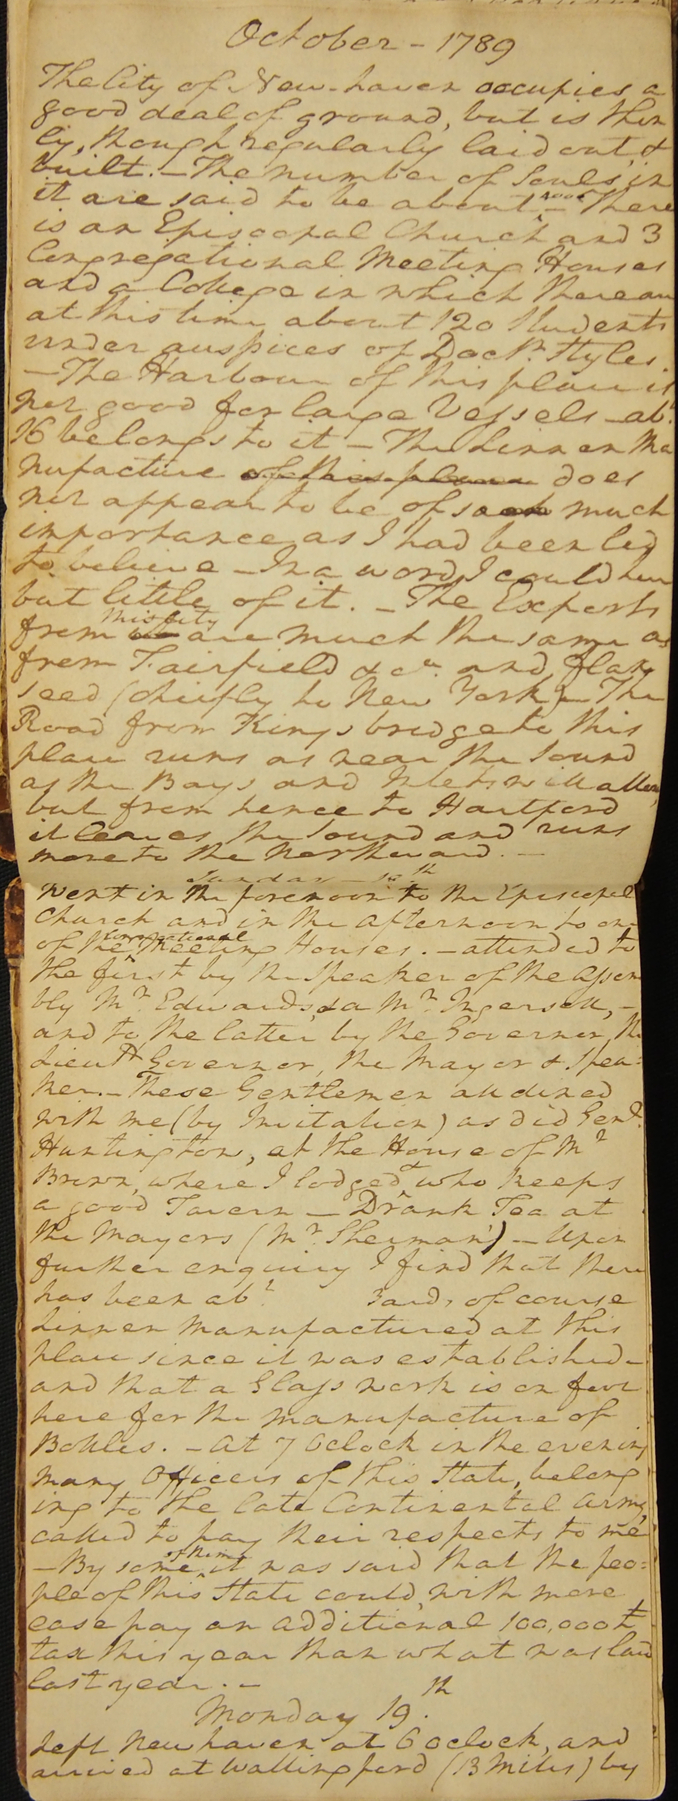 October - 1789
The City of New-haven occupies a
good deal of ground, but is thin
ly, though regularly laid out, &
built. - The number of Souls in
it are said to be about 4000 - There
is an Episcopal Church and 3
Congregational Meeting Houses
and a College in which there are
at this time about 120 Students
under auspices of Doctr. Styles.
- The Harbour of this place is
not good for large Vessels - abt.
16 belongs to it - The Linnen Ma
nufacture of this place does
not appear to be of so much
importance as I had been led
to believe - In a word I could hear
but little of it. - The Exports
from this City are much the same as
from Fairfield &ca. and flax
seed (chiefly to New York) - The
Road from Kings bridge to this
place runs as near the Sound
as the Bays and Inlets will allow,
but from hence to Hartford
it leaves the Sound and runs
more to the Northward. -
Sunday - 18th
Went in the forenoon to the Episcopal
Church and in the afternoon to one
of the Congregational Meeting Houses. - attended to
the first by the Speaker of the Assem
bly Mr. Edwards, & a Mr. Ingersoll, -
and to the latter by the Governor, the
Lieutt. Governor, the Mayor & Spea-
ker. - These Gentlemen all dined
with me (by Invitation) as did Genl.
Huntington, at the House of Mr
Brown, where I lodged & who keeps
a good Tavern - Drank Tea at
the Mayors (Mr. Sherman's) - Upon
further enquiry I find that there
has been abt. Yards of course
Linnen Manufactured at this
place since it was established -
and that a Glass work is on foot
here for the manufacture of
Bottles. - At 7 Oclock in the evening
many Officers of this State, belong
ing to the late Continental Army,
called to pay their respects to me
- By some of them it was said that the peo-
ple of this State could, with more
ease pay an additional 100,000 lb
tax this year than what was laid
last year. -
Monday 19.th
Left New haven at 6 oclock, and
arrived at Wallingford (13 Miles) by